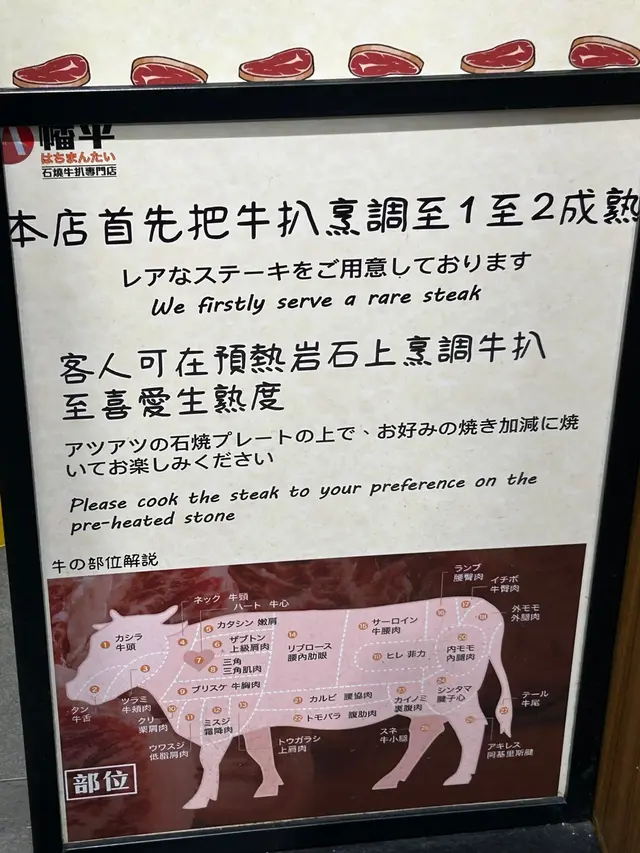 幡平
はちまんたい
石燒牛扒專門店
本店首先把牛扒烹調至1至2成熟
レアなステーキをご用意しております
We firstly serve a rare steak
客人可在預熱岩石上烹調牛扒
至喜愛生熟度
アツアツの石焼プレートの上で、お好みの焼き加減に焼
いてお楽しみください
Please cook the steak to your preference on the
pre-heated stone
牛の部位解説
ランプ
腰臀肉
イチボ
牛臀肉
ネック 牛頸
ハート 牛心
外モモ
外腿肉
1 カシラ
牛頭
4
5 カタシン 嫩肩
6 ザブトン
上級肩肉
7
三角
8 三角肌肉
14 リブロース
腰內肋眼
15 サーロイン
牛腰肉
16
17
18
19 ヒレ 菲力
20
內モモ
內腿肉
2
タン
牛舌
3
ツラミ
牛頬肉
9 ブリスケ 牛胸肉
10
クリ
栗肩肉
11
ウワスジ
低脂肩肉
12
ミスジ
霜降肉
13
トウガラシ
上肩肉
21 カルビ 腰協肉
22 トモバラ 腹肋肉
23
カイノミ
裏腹肉
24
シンタマ
腱子心
テール
牛尾
スネ
牛小腿
アキレス
阿基里斯腱
部位